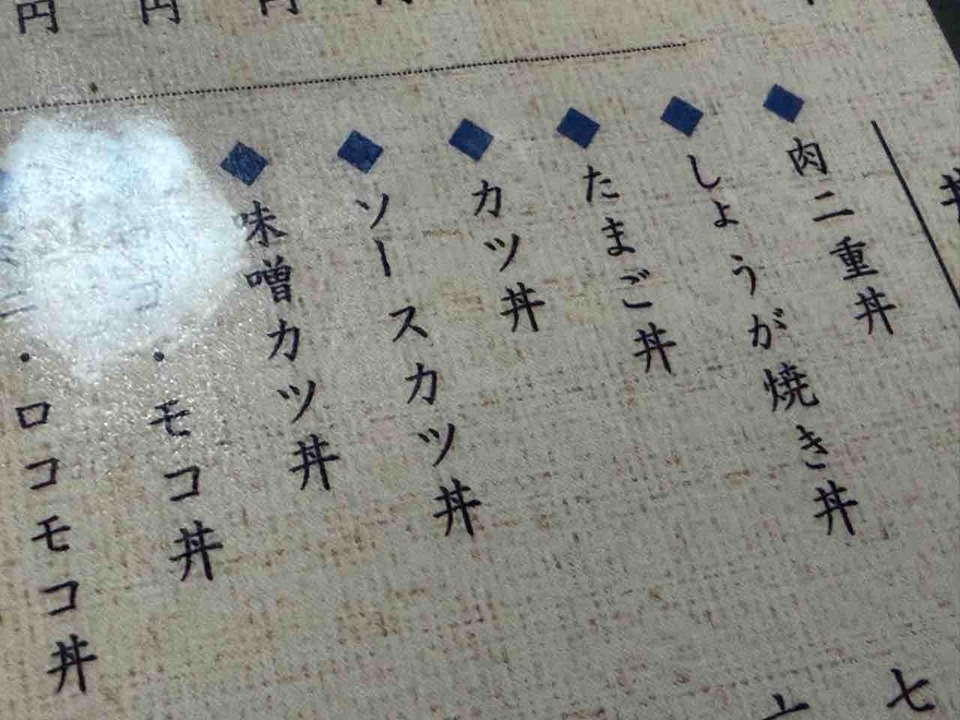 円
円
円
円
丼
◆肉二重丼
◆しょうが焼き丼
◆たまご丼
◆カツ丼
◆ソースカツ丼
◆味噌カツ丼
・モコ丼
ミニ・ロコモコ丼
七